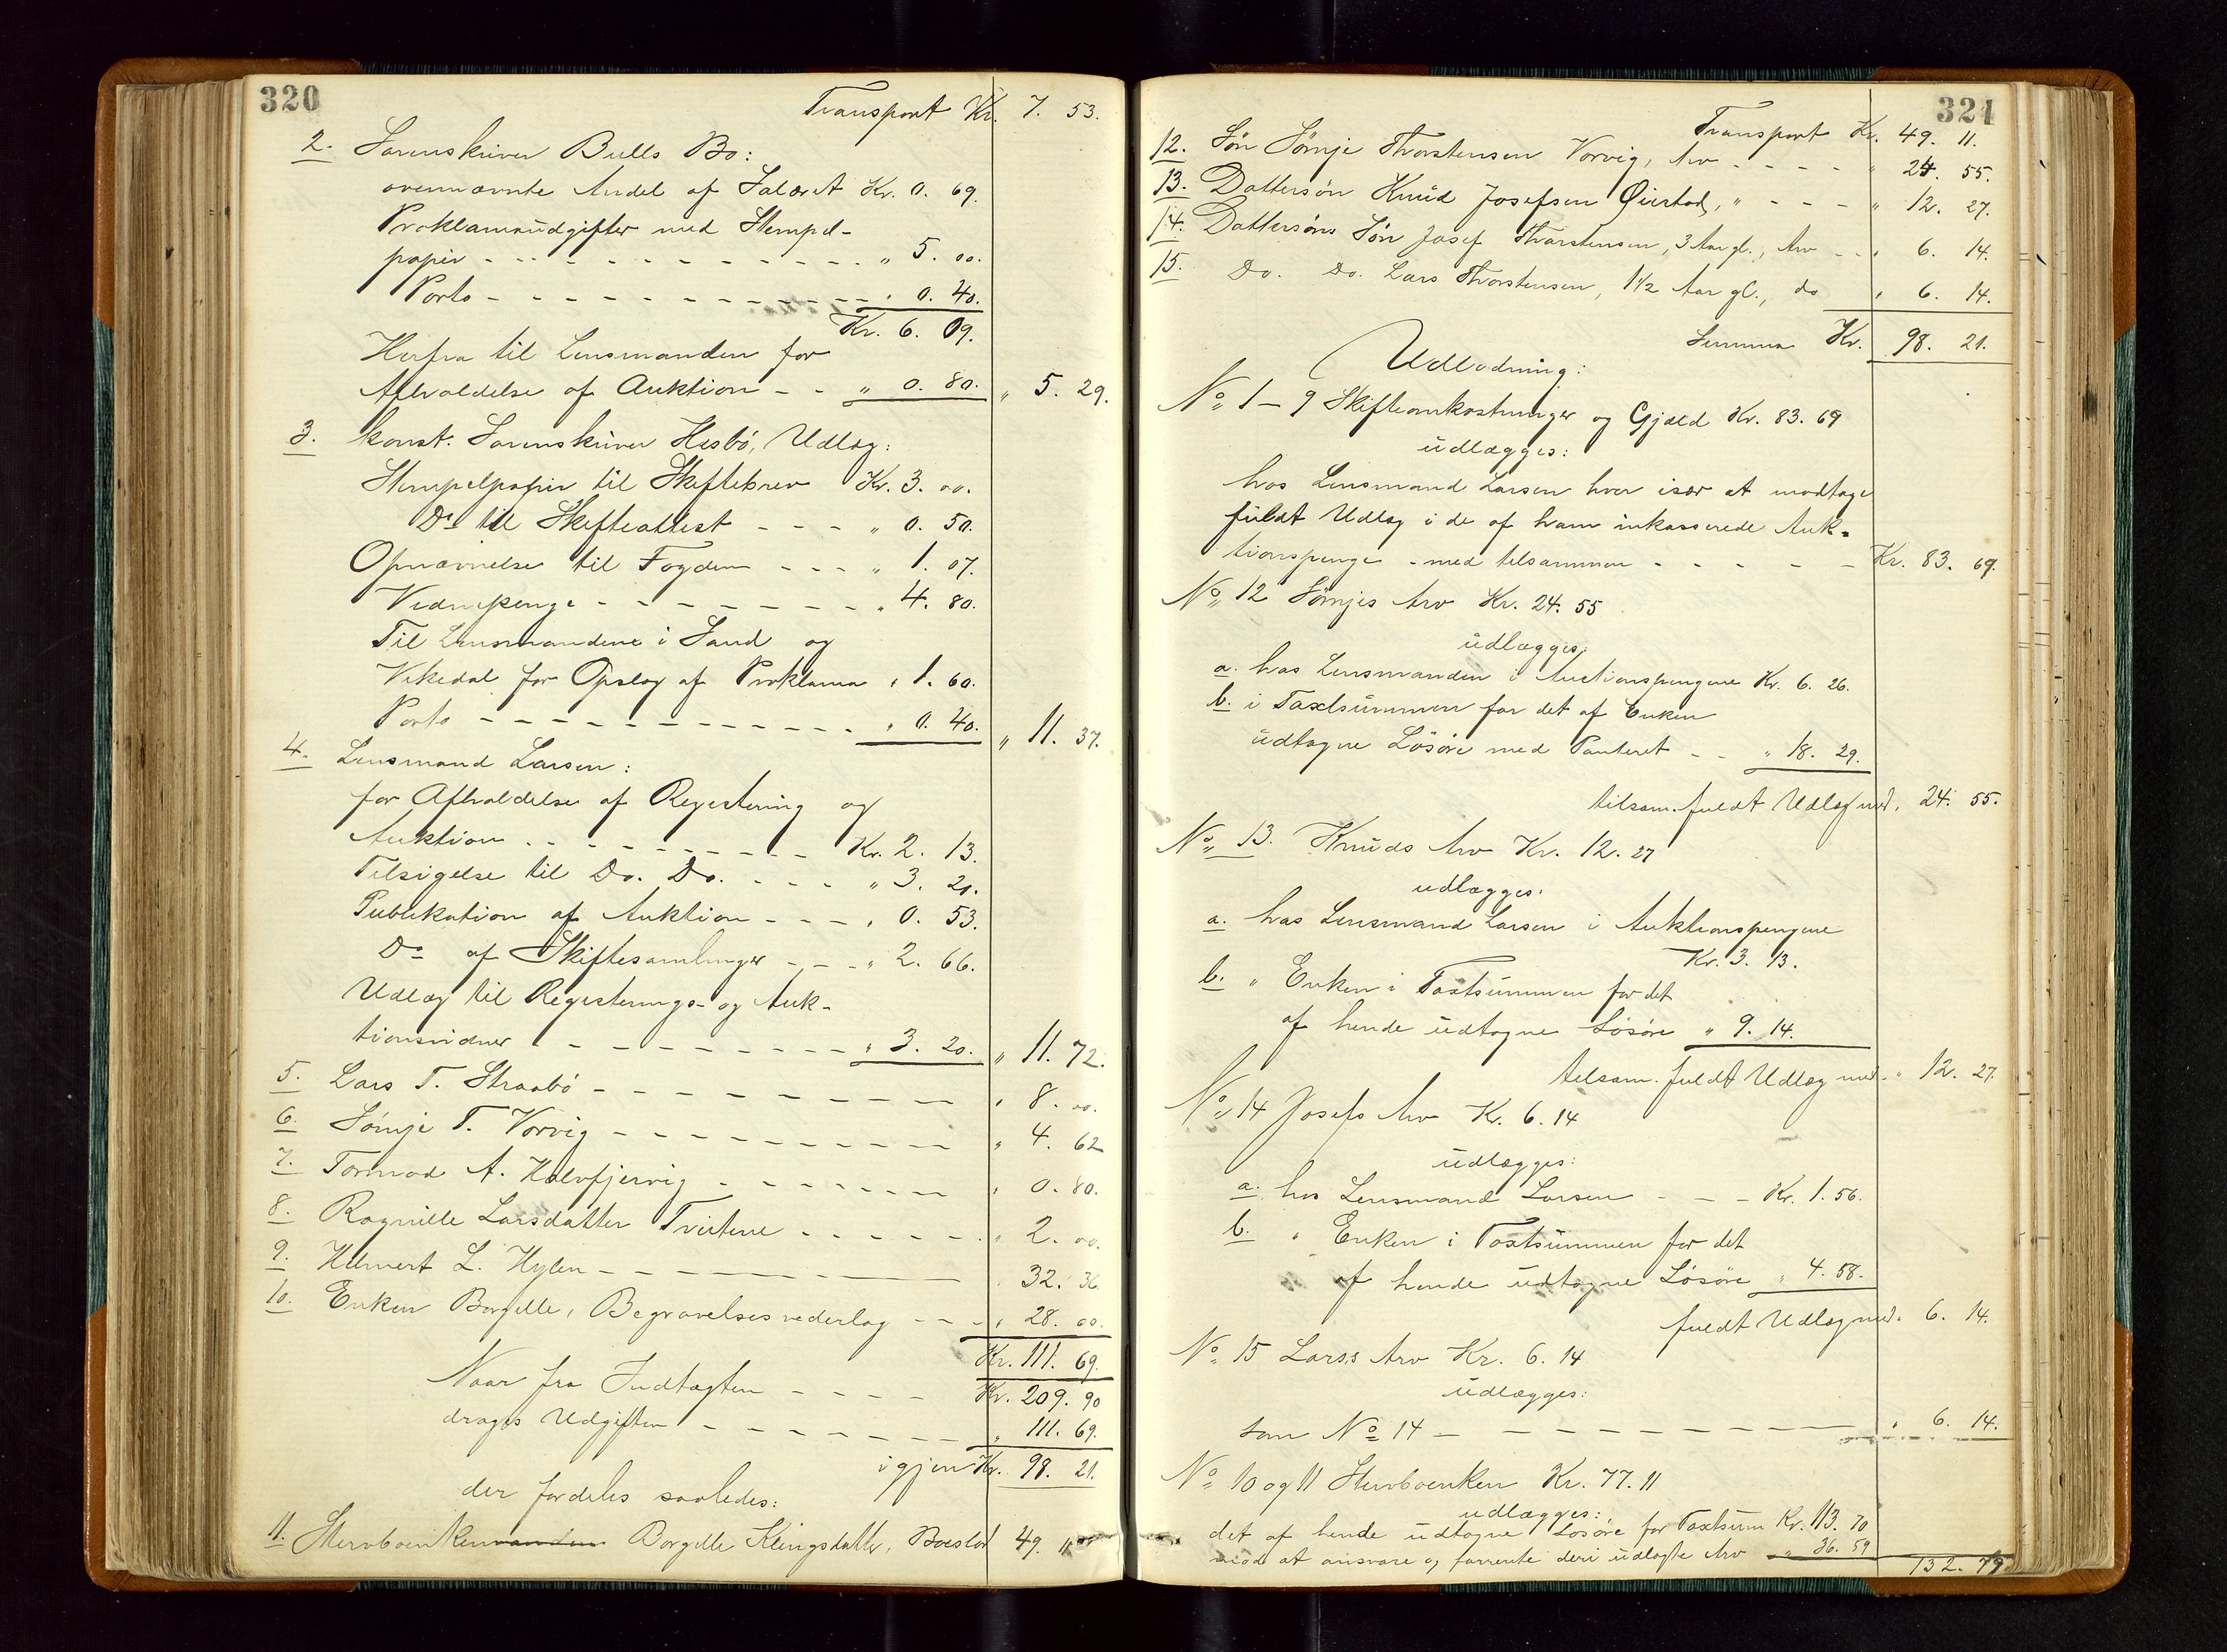 320
Transport Kr. 7. 53.
2. Sorenskriver Bulls Bo:
ovennævnte Andel af Salæret Kr. 0. 69.
Proklamaudgifter med Stempel-
papir - - - - " 5. 00.
Porto - - - - " 0. 40.
Kr. 6. 09.
Herfra til Lensmanden for
Afholdelse af Auktion - - " 0. 80. " 5. 29.
3. konst. Sorenskriver Hesbö, Udlæg:
Stempelpapir til Skiftebrev Kr. 3. 00.
Do til Skifteattest - - - " 0. 50.
Opnævnelse til Fogden - - - " 1. 07.
Vidnepenge - - - - " 4. 80.
Til Lensmandene i Sand og
Vikedal for Opslag af Proklama " 1. 60.
Porto - - - - " 0. 40. " 11. 37.
4. Lensmand Larsen:
for Afholdelse af Registering og
Auktion - - - - Kr. 2. 13.
Tilsigelse til Do. Do. - - - " 3. 20.
Publikation af Auktion - - - " 0. 53.
Do af Skiftesamlinger - - - " 2. 66.
Udlæg til Registerings- og Auk-
tionsvidner - - - - " 3. 20. " 11. 72.
5. Lars T. Straabö - - - - " 8. 00.
6. Sömje T. Vorvig - - - - " 4. 62
7. Tormod A. Halvfjervig - - - - " 0. 80.
8. Ragnille Larsdatter Tveitene - - - - " 2. 00.
9. Helmert L. Hylen - - - - " 32. 36
10. Enken Borgille, Begravelsesvederlag - - - " 28. 00.
Kr. 111. 69.
Naar fra Indtægten - - - - Kr. 209. 90
drages Udgiften - - - - " 111. 69.
igjen Kr. 98. 21.
der fordeles saaledes:
11. Stervboenken Borgille Kleingsdatter, Boeslod 49. 11
321
Transport Kr. 49. 11.
12. Sön Sömje Thorstensen Vorvig, Arv - - - - " 24. 55.
13. Dattersön Knud Josefsen Øiestad, " - - - " 12. 27.
14. Dattersöns Sön Josef Thorstensen, 3 Aar gl., Arv - - " 6. 14.
15. Do. Do. Lars Thorstensen, 1 1/2 Aar gl., do " 6. 14.
Summa Kr. 98. 21.
Udlodning:
No 1 - 9 Skifteomkostninger og Gjæld Kr. 83. 69
udlægges:
hos Lensmand Larsen hver især at modtage
fuldt Udlæg i de af ham inkasserede Auk-
tionspenge - med tilsammen - - - - Kr. 83. 69.
No 12 Sömjes Arv Kr. 24. 55
udlægges:
a. hos Lensmanden i Auctionspengene Kr. 6. 26.
b. i Taxtsummen for det af Enken
udtagne Lösöre med Panteret - - " 18. 29.
tilsam. fuldt Udlæg med. 24. 55.
No 13. Knuds Arv Kr. 12. 27
udlægges:
a. hos Lensmand Larsen i Auktionspengene
Kr. 3. 13.
b. " Enken i Taxtsummen for det
af hende udtagne Lösöre " 9. 14.
tilsam. fuldt Udlæg med. " 12. 27.
No 14 Josefs Arv Kr. 6. 14
udlægges:
a. hos Lensmand Larsen - - - Kr. 1. 56.
b. " Enken i Taxtsummen for det
af hende udtagne Lösöre " 4. 58.
fuldt Udlæg med. 6. 14.
No 15 Lars's Arv Kr. 6. 14
udlægges:
som No 14 - - - - " 6. 14.
No 10 og 11 Stervboenken Kr. 77. 11
udlægges:
det af hende udtagne Lösöre for Taxtsum Kr. 113. 70
mod at ansvare og forrente deri udlagte Arv - " 36. 59
132. 79